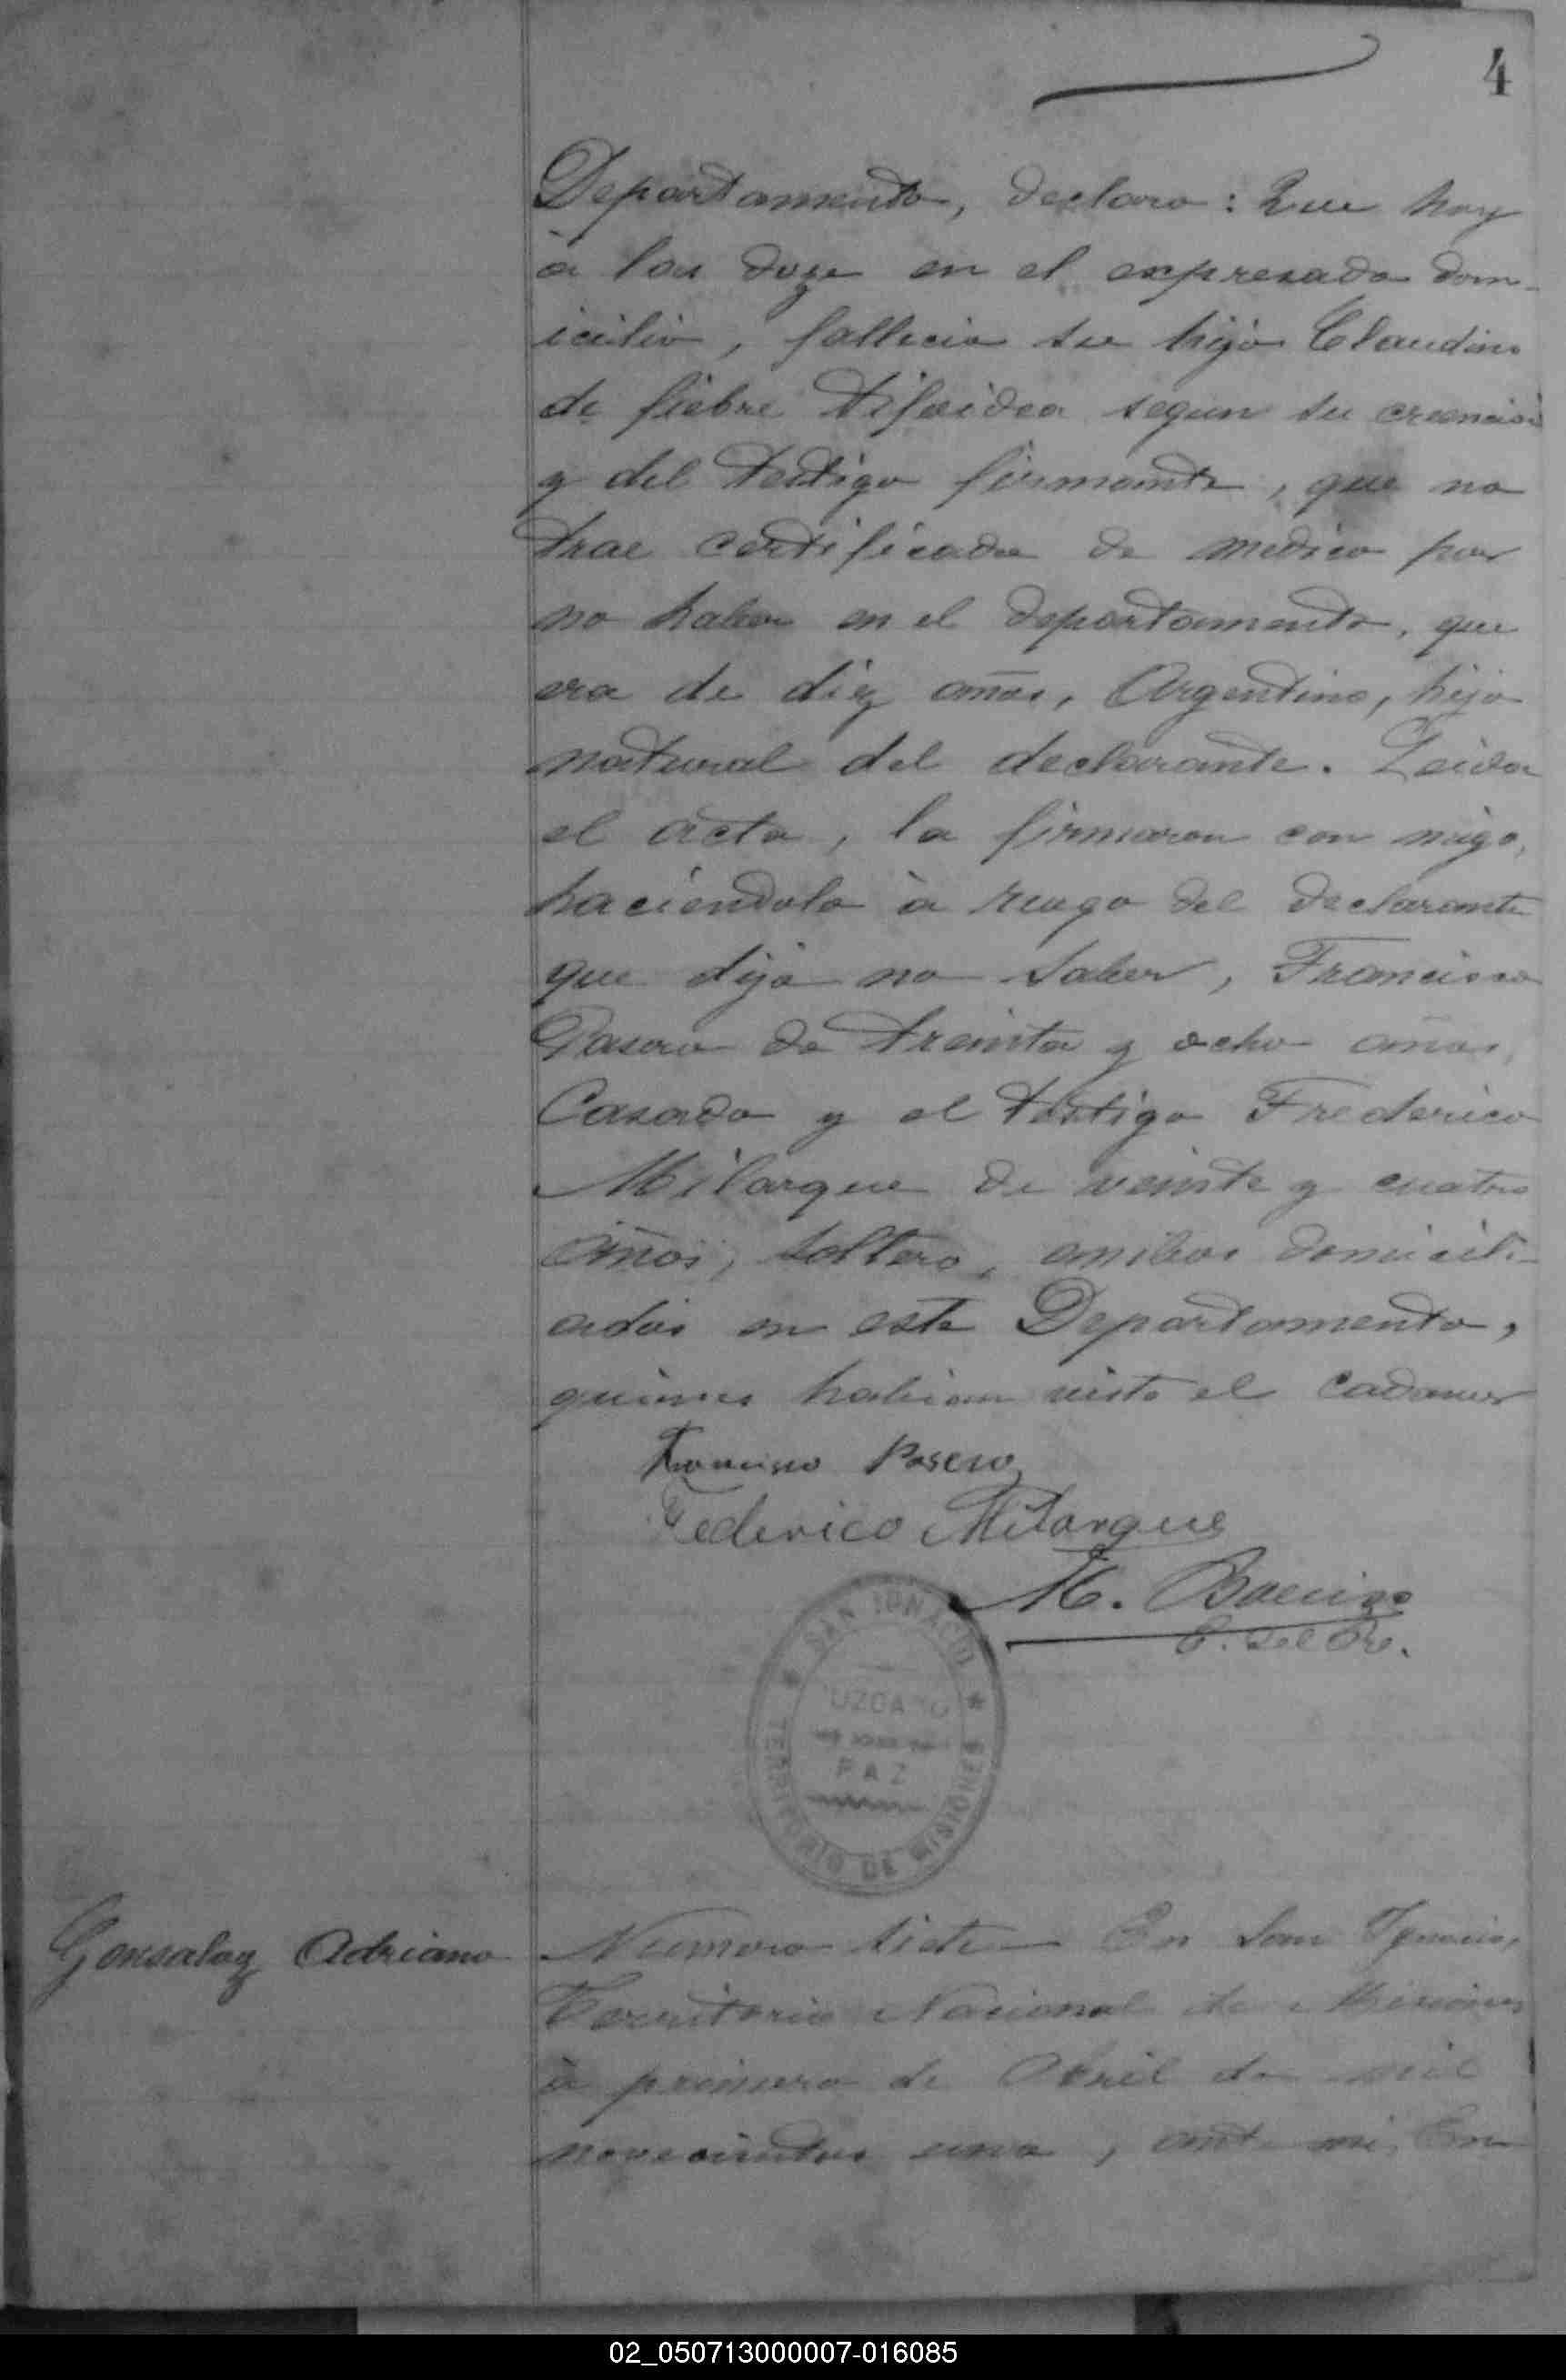 4
Departamento, declaro: Que hoy
a las doze en el expresado dom-
icilio, fallecio su hijo Claudino
de fiebre tifoidea segun su creencia
y del testigo firmante, que no
trae certificado de medico por
no haber en el departamento, que
era de diez años, Argentino, hijo
natural del declarante. Leida
el acta, la firmaron con migo,
haciendolo à ruego del declarante
que dijo no saber, Francisco
Pasero de treinta y ocho años,
Casado y el testigo Frederico
Milarque de veinte y cuatro
años, soltero, ambos domicili-
ados en este Departamento,
quienes habian visto el cadaver
Francisco Pasero
Federico Milarque
M.
E. del Re.
SAN IGNACIO
JUZGADO
PAZ
TERRITORIO DE MISIONES
Gonsalez Adriano
Numero siete En San Ignacio,
Territorio Nacional de Misiones
à primero de Abril de mil
novecientos uno, ante mi, En
02_050713000007-016085